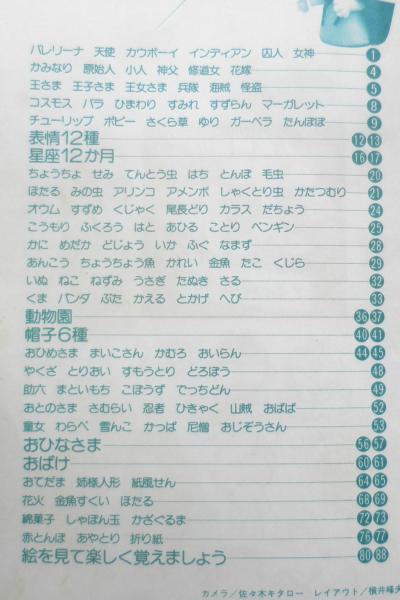 バレリーナ 天使 カウボーイ インディアン 囚人 女神 1
かみなり 原始人 小人 神父 修道女 花嫁 4
王さま 王子さま 王女さま 兵隊 海賊 怪盗 5
コスモス バラ ひまわり すみれ すずらん マーガレット 8
チューリップ ポピー さくら草 ゆり ガーベラ たんぽぽ 9
表情12種 12 13
星座12か月 16 17
ちょうちょ せみ てんとう虫 はち とんぼ 毛虫 20
ほたる みの虫 アリンコ アメンボ しゃくとり虫 かたつむり 21
オウム すずめ くじゃく 尾長どり カラス だちょう 24
こうもり ふくろう はと あひる ことり ペンギン 25
かに めだか どじょう いか ふぐ なまず 28
あんこう ちょうちょう魚 かれい 金魚 たこ くじら 29
いぬ ねこ ねずみ うさぎ たぬき さる 32
くま パンダ ぶた かえる とかげ へび 33
動物園 36 37
帽子6種 40 41
おひめさま まいこさん かむろ おいらん 44 45
やくざ とりおい すもうとり どろぼう 48
助六 まといもち こぼうず でっちどん 49
おとのさま さむらい 忍者 ひきゃく 山賊 おばば 52
童女 わらべ 雪んこ かっぱ 尼僧 おじぞうさん 53
おひなさま 56 57
おばけ 60 61
おてだま 姉様人形 紙風せん 64 65
花火 金魚すくい ほたる 68 69
綿菓子 しゃぼん玉 かざぐるま 72 73
赤とんぼ あやとり 折り紙 76 77
絵を見て楽しく覚えましょう 80 88
カメラ／佐々木キタロー レイアウト／横井峰